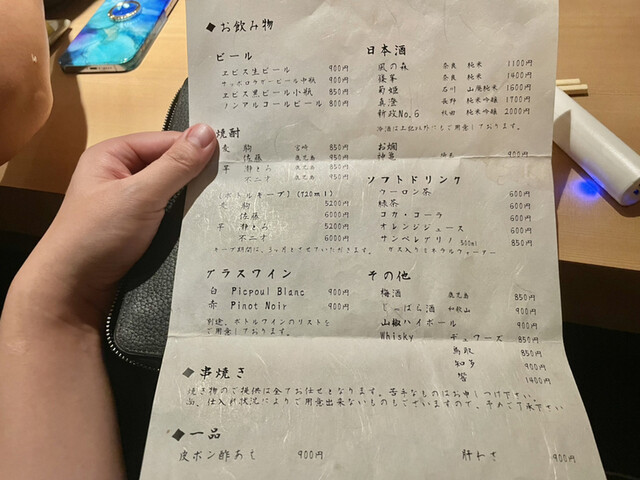 ◆お飲み物
ビール
ヱビス生ビール 900円
サッポロラガービール中瓶 900円
ヱビス黒ビール小瓶 850円
ノンアルコールビール 800円
焼酎
麦 駒 宮崎 850円
佐藤 鹿児島 950円
芋 鹿児島 850円
不二才 鹿児島 950円
(ボトルキープ)(720ml)
麦 駒 5200円
佐藤 6000円
芋 5200円
不二才 6000円
キープ期間は、3ヶ月とさせていただきます。
グラスワイン
白 Picpoul Blanc 900円
赤 Pinot Noir 900円
別途、ボトルワインのリストを
ご用意しております。
日本酒
風の森 奈良 純米 1100円
篠峯 奈良 純米 1400円
菊姫 石川 山廃純米 1600円
真澄 長野 純米吟醸 1700円
新政No.6 秋田 純米吟醸 2000円
冷酒は上記以外にもご用意しております。
お燗
神亀 埼玉 900円
ソフトドリンク
ウーロン茶 600円
緑茶 600円
コカ・コーラ 600円
オレンジジュース 600円
サンペレグリノ 500ml 850円
ガス入りミネラルウォーター
その他
梅酒 鹿児島 850円
じゃばら酒 和歌山 900円
山椒ハイボール 900円
Whisky デュワーズ 850円
鳥取 850円
知多 900円
響 1400円
◆串焼き
焼き物のご提供は全てお任せとなります。苦手なものはお申しつけ下さい。
尚、仕入れ状況によりご用意出来ないものもございますので、予めご了承下さい
◆一品
皮ポン酢あえ 900円
肝わさ 900円